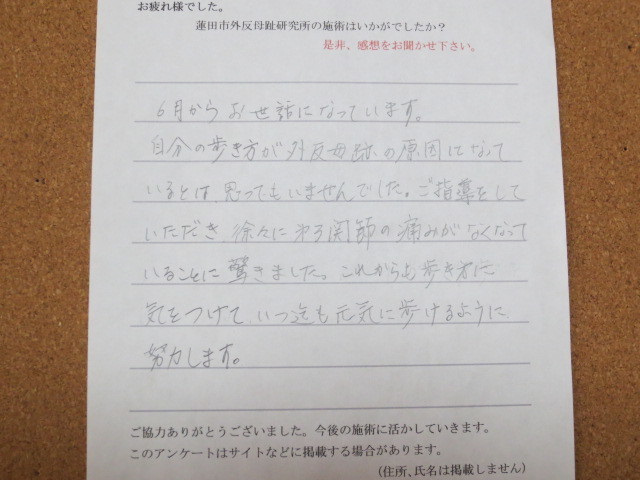 お疲れ様でした。
蓮田市外反母趾研究所の施術はいかがでしたか？
是非、感想をお聞かせ下さい。
6月からお世話になっています。
自分の歩き方が外反母跡の原因になって
いるとは、思ってもいませんでした。ご指導をして
いただき、徐々に 関節の痛みがなくなって
いることに驚きました。これからも歩き方に
気をつけて、いつ迄も元気に歩けるように
努力します。
ご協力ありがとうございました。今後の施術に活かしていきます。
このアンケートはサイトなどに掲載する場合があります。
（住所、氏名は掲載しません）